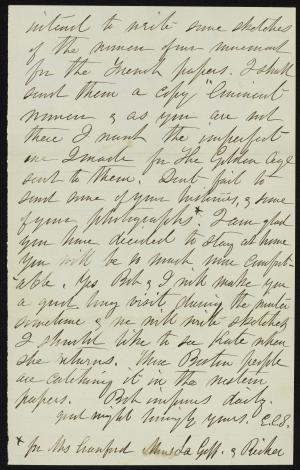 intend to write some sketches
of the women of our movement
for the French papers. I shall
send them a copy "Eminent
women & as you are not
there I want the imperfect
one I made for The Golden Age
sent to them. Don't fail to
send some of your histories, & some
of your photographs * I am glad
you have decided to stay at home
You will be so much more comfort-
able. Yes, Bob & I will make you
a good long visit during the winter
sometime & we will write sketches
I should like to see Kate when
she returns. Those Boston people
are catching it in the western
papers. Bob improves daily.
good night lovingly yours. E.C.S.
* for Mrs Crawford &